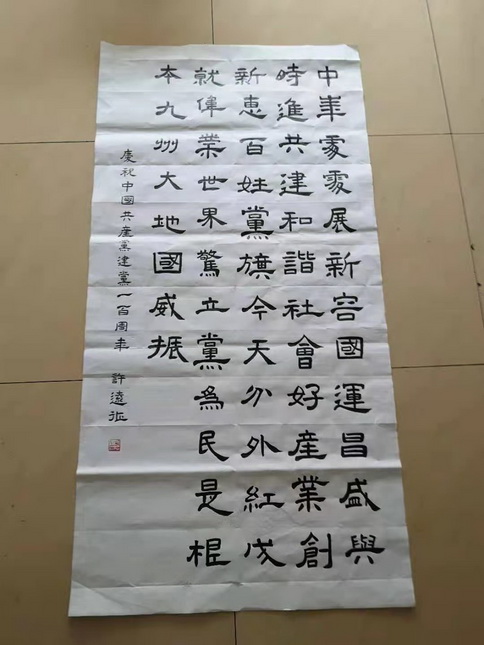 中華處處展新容國運昌盛與
時進共建和諧社會好産業創
新惠百姓黨旗今天分外紅成
就偉業世界驚立黨為民是根
本九州大地國威振
慶祝中國共産黨建黨一百周年 許遠